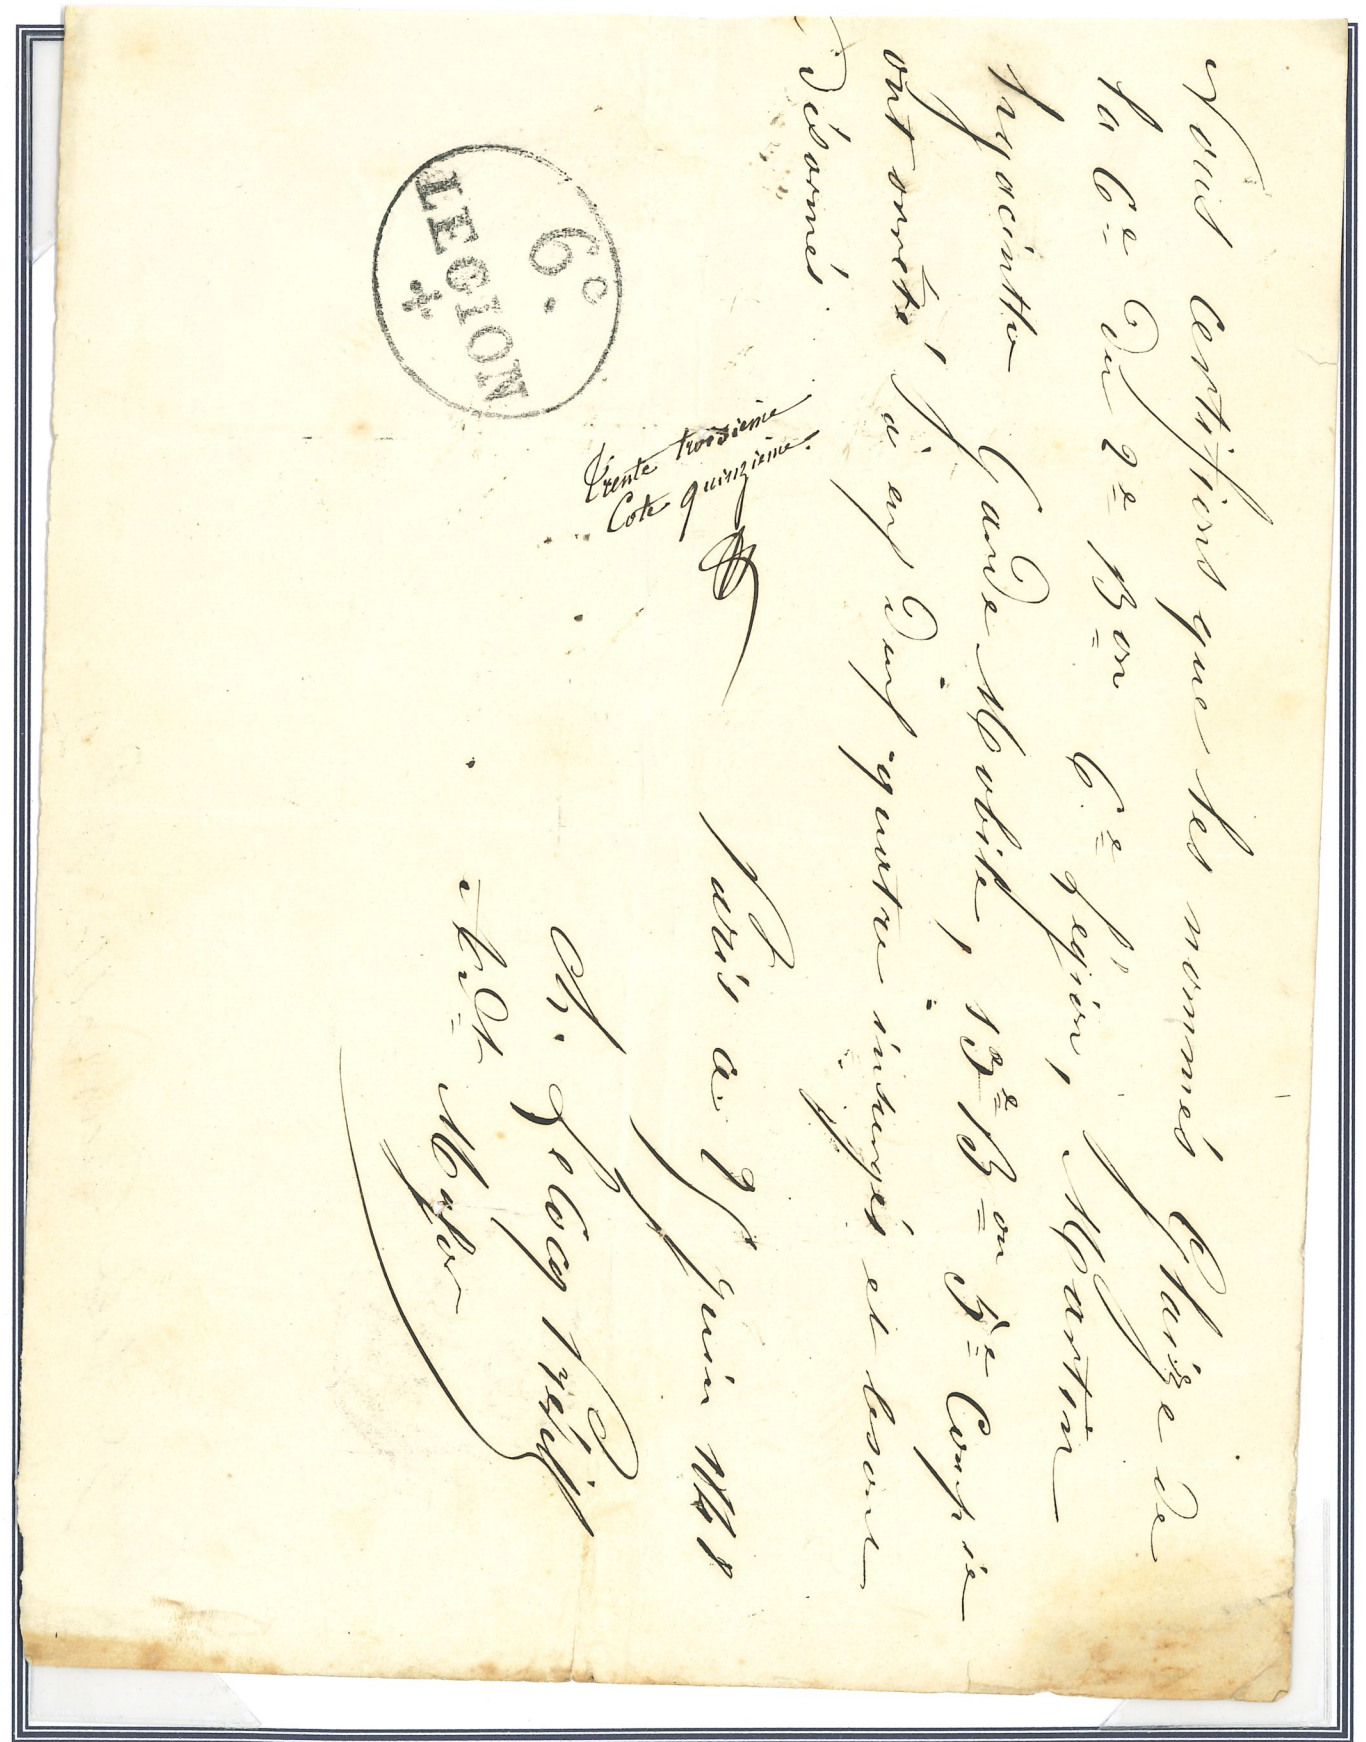 Nous certifions que les nommés Glaize de
la 6e du 2e Bon 6e Légion, Martin
hyacinthe Garde Mobile, 13e Bon 5e Compie
ont arrêté à eux deux quatre insurgés et les ont
désarmés.
Trente troisieme
Cote quinzieme.
Paris ce 25 juin 1848
Adt Major
6e.
LEGION